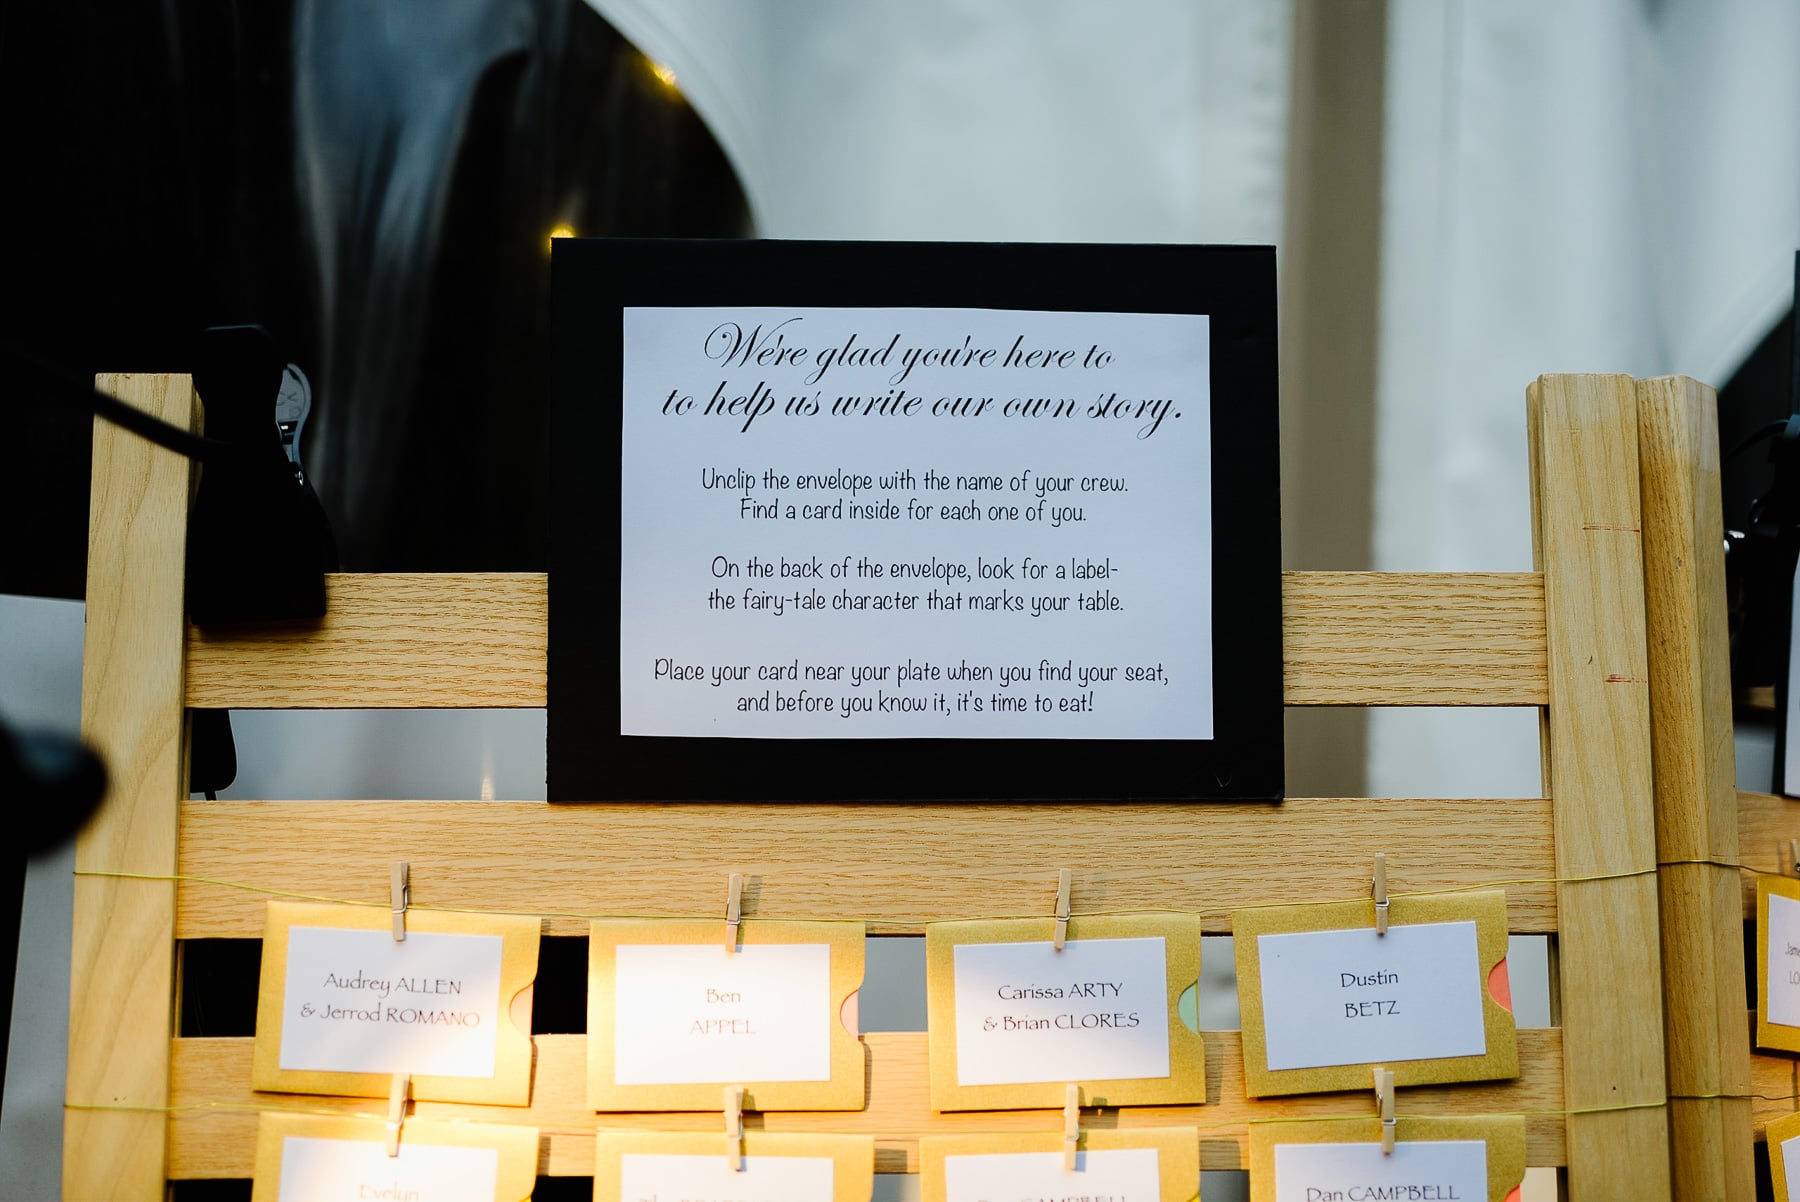 We're glad you're here to
to help us write our own story.
Unclip the envelope with the name of your crew.
Find a card inside for each one of you.
On the back of the envelope, look for a label-
the fairy-tale character that marks your table.
Place your card near your plate when you find your seat,
and before you know it, it's time to eat!
Audrey ALLEN
& Jerrod ROMANO
Ben
APPEL
Carissa ARTY
& Brian CLORES
Dustin
BETZ
Evelyn
CAMPBELL
Dan CAMPBELL